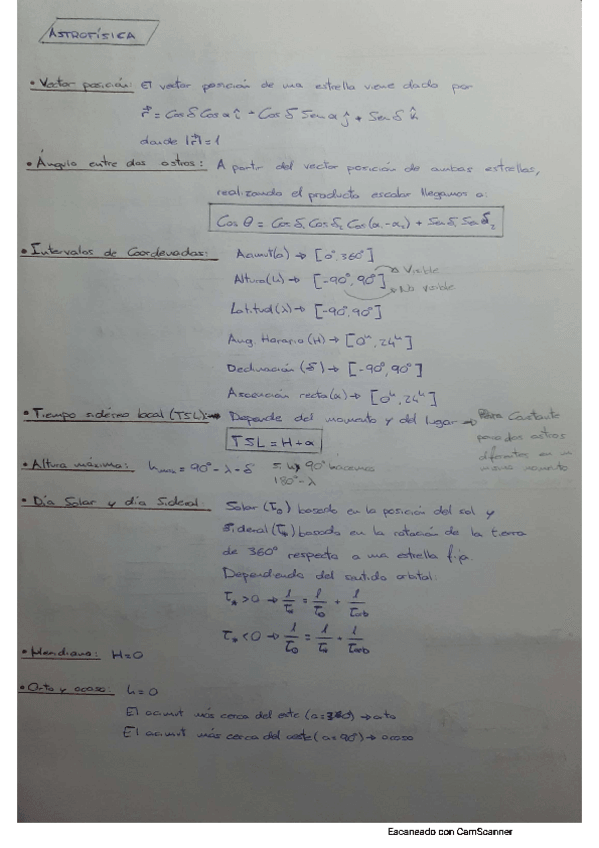 ASTROFÍSICA
• Vector posición: El vector posición de una estrella viene dado por
r⃗ = Cos δ Cos α î + Cos δ Sen α ĵ + Sen δ k̂
donde |r⃗|=1
• Ángulo entre dos astros: A partir del vector posición de ambas estrellas,
realizando el producto escalar llegamos a:
Cos θ = Cos δ₁ Cos δ₂ Cos(α₁-α₂) + Sen δ₁ Sen δ₂
• Intervalos de Coordenadas: Acimut(a) → [0°,360°]
Altura(h) → [-90°,90°] → Visible
→ No visible
Latitud(λ) → [-90,90°]
Ang. Horario(H) → [0ʰ,24ʰ]
Declinación (δ) → [-90°,90°]
Ascensión recta(α) → [0ʰ,24ʰ]
• Tiempo sidéreo local (TSL) → Depende del momento y del lugar → Constante
para dos astros
diferentes en un
mismo momento
TSL = H+α
• Altura máxima: hmax = 90°-λ-δ Si h> 90° hacemos
180°-λ
• Día Solar y día Sideral: Solar (τ⊙) basado en la posición del sol y
Sideral (τ*) basado en la rotación de la tierra
de 360° respecto a una estrella fija.
Dependiendo del sentido orbital:
>0 →
<0 →
• Meridiano: H=0
• Orto y ocaso: h=0
El acimut más cerca del este → orto
El acimut más cerca del oeste (a=90°) → ocaso
Escaneado con CamScanner